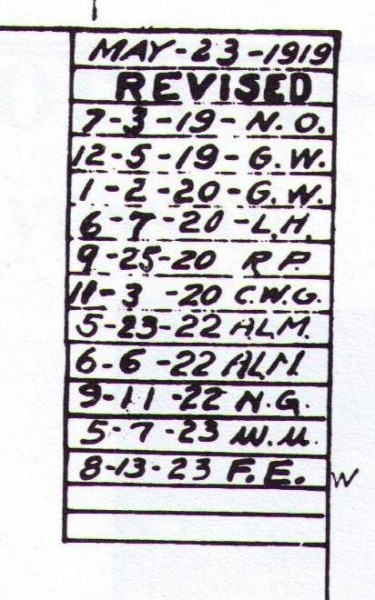 MAY-23-1919
REVISED
7-3-19-N.O.
12-5-19-G.W.
1-2-20-G.W.
6-7-20-L.H.
9-25-20 R.P.
11-3-20 C.W.G.
5-23-22 ALM.
6-6-22 ALM.
9-11-22 N.G.
5-7-23 W.U.
8-13-23 F.E. W